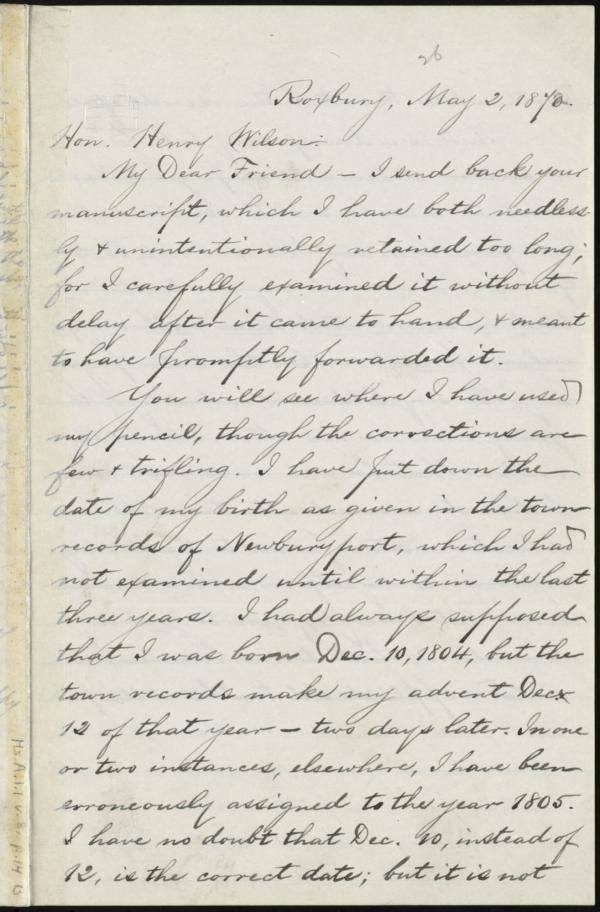 26
Roxbury, May 2, 1870.
Hon. Henry Wilson:
My Dear Friend — I send back your
manuscript, which I have both needless-
ly & unintentionally retained too long;
for I carefully examined it without
delay after it came to hand, & meant
to have promptly forwarded it.
You will see where I have used
my pencil, though the corrections are
few & trifling. I have put down the
date of my birth as given in the town
records of Newburyport, which I had
not examined until within the last
three years. I had always supposed
that I was born Dec. 10, 1804, but the
town records make my advent Dec.
12 of that year — two days later. In one
or two instances, elsewhere, I have been
erroneously assigned to the year 1805.
I have no doubt that Dec. 10, instead of
12, is the correct date; but it is not